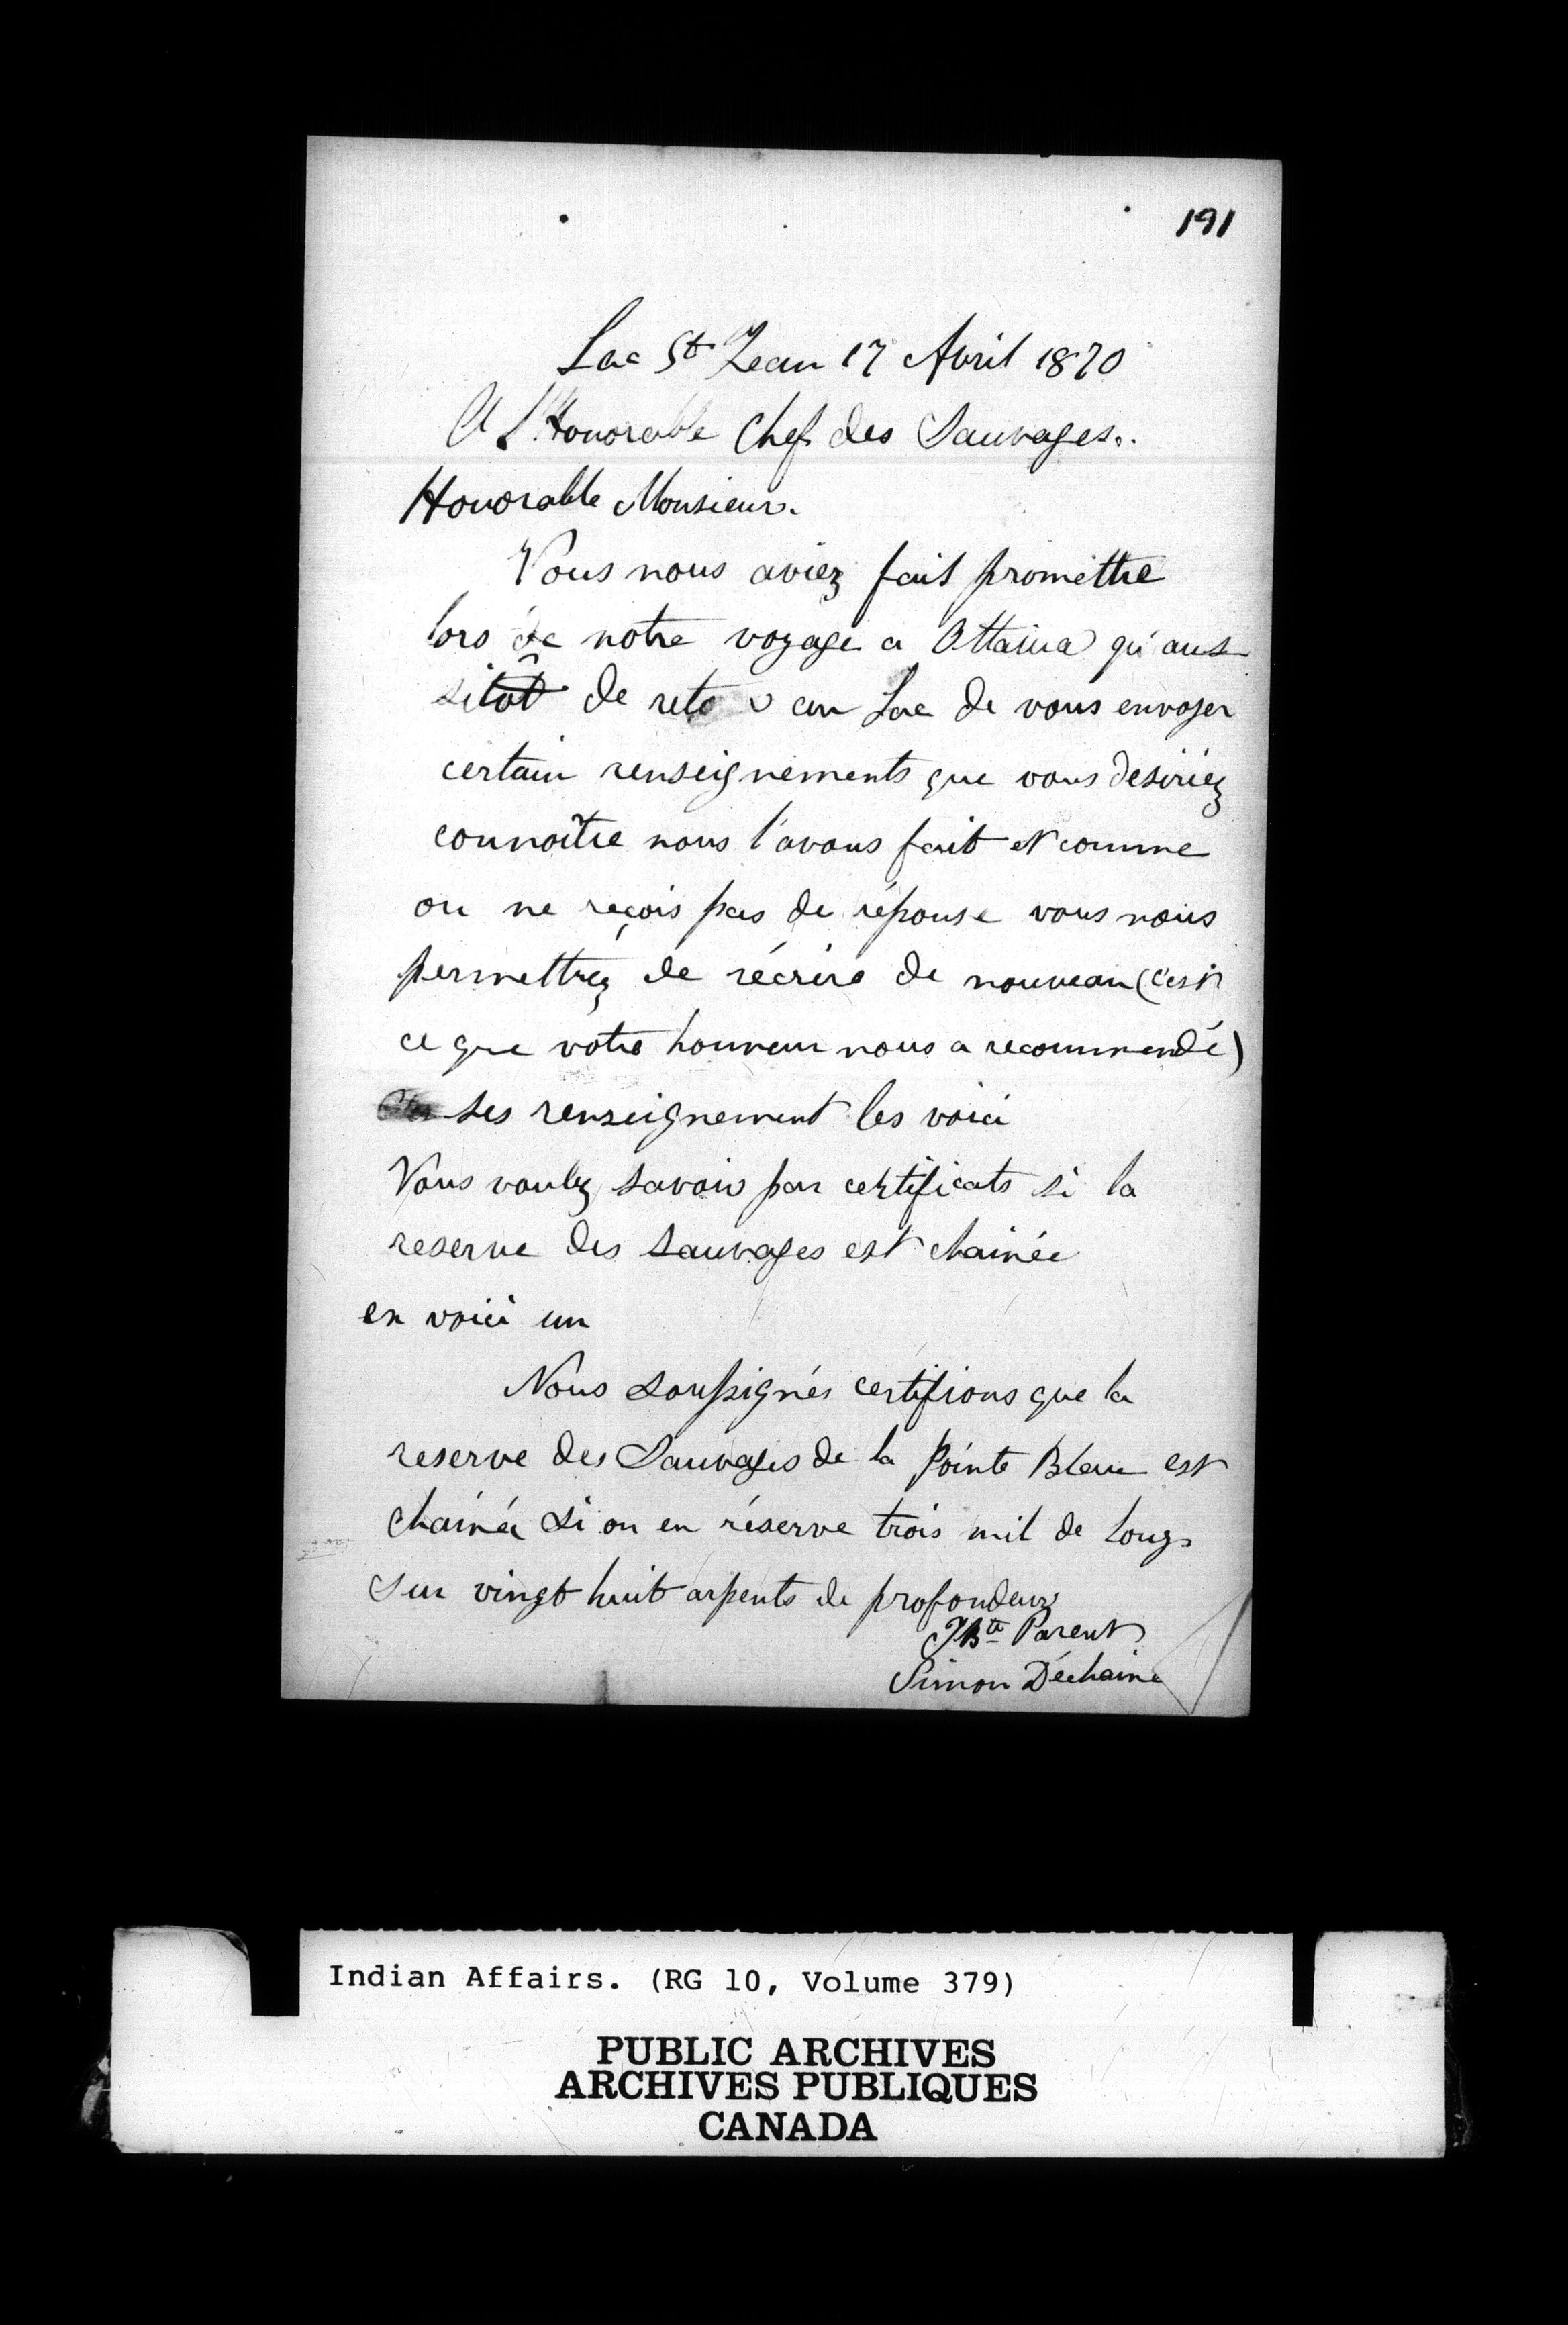 191
Lac St Jean 17 Avril 1870
A L'Honorable Chef des Sauvages.
Honorable Monsieur.
Vous nous aviez fait promèttre
lors de notre voyage a Ottawa qu'aus
sitôt de au Lac de vous envoyer
certain renseignements que vous desiriez
connaître nous l'avons fait et comme
on ne reçois pas de réponse vous nous
permettrez de récrire de nouveau (c'est
ce que votre honneur nous a recommendé)
ses renseignement les voici
Vous voulez savoir par certificats si la
reserve des sauvages est chainée
en voici un
Nous soussignés certifions que la
reserve des Sauvages de la Pointe Bleue est
chainée si on en réserve trois mil de long
sur vingt huit arpents de profondeur
JBte Parent
Simon Déchaine
Indian Affairs. (RG 10, Volume 379)
PUBLIC ARCHIVES
ARCHIVES PUBLIQUES
CANADA